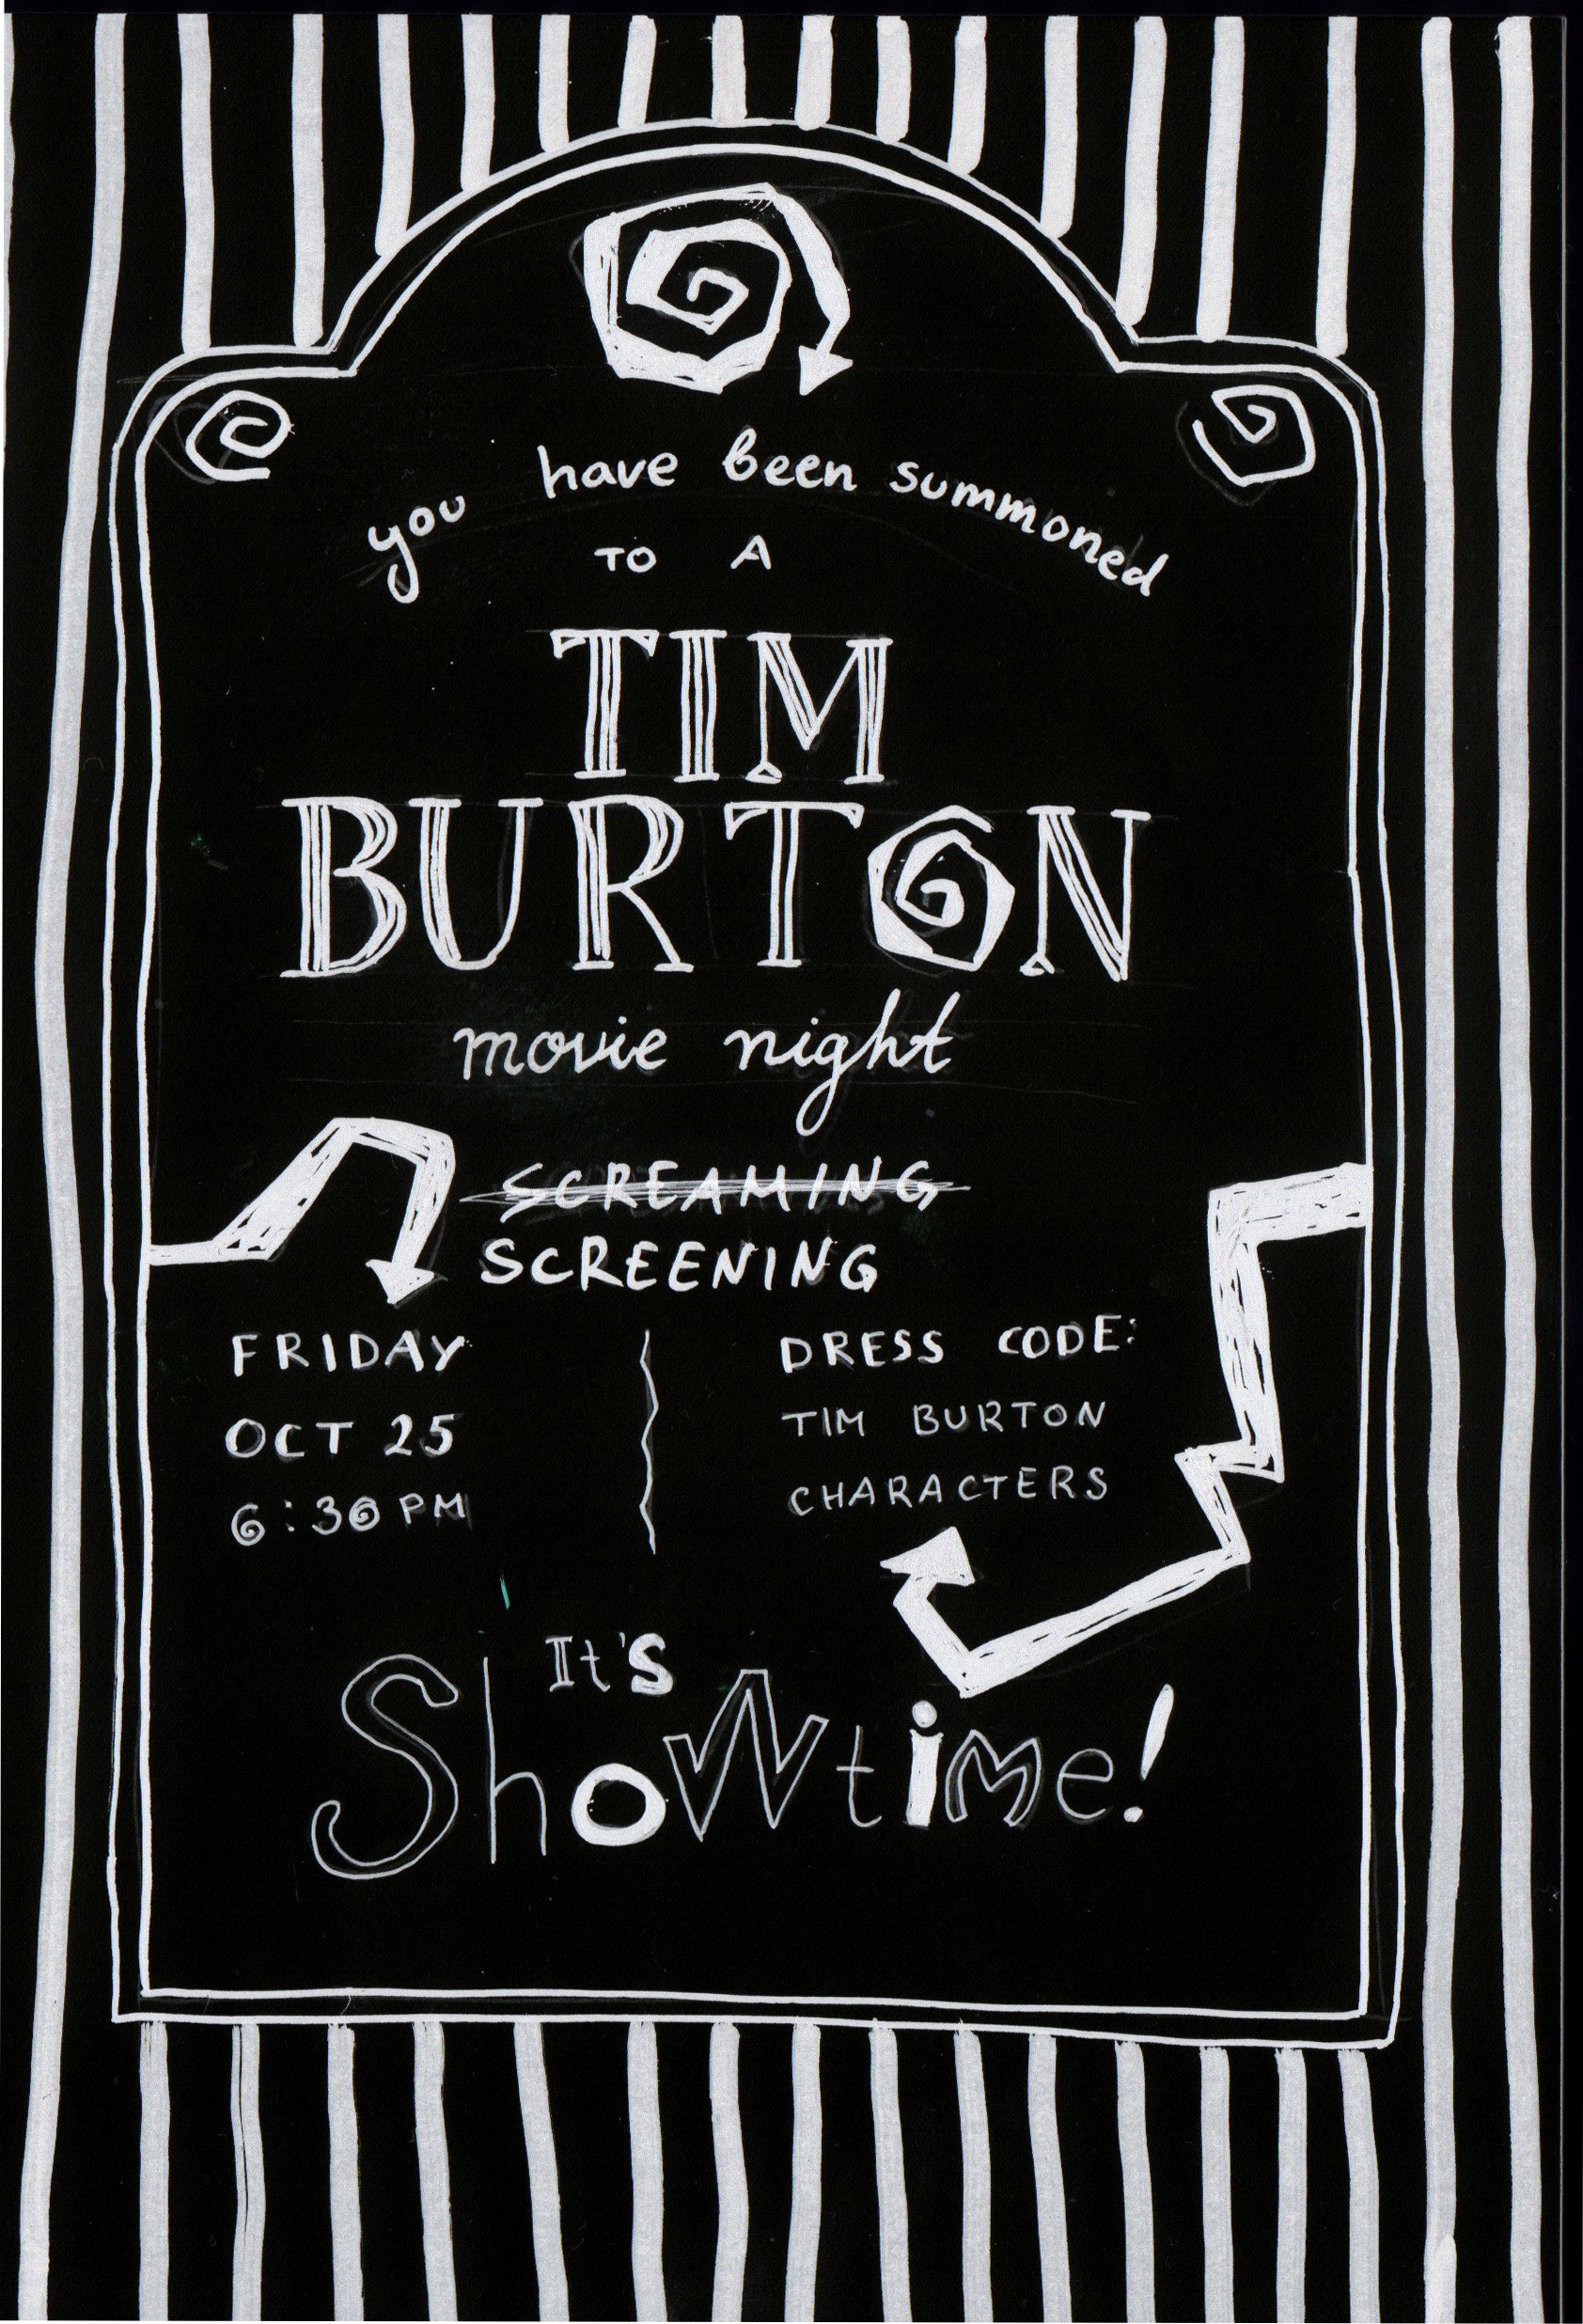 you have been summoned
TO A
TIM
BURTON
movie night
SCREAMING
SCREENING
FRIDAY
OCT 25
6:30 PM
DRESS CODE:
TIM BURTON
CHARACTERS
It's
Showtime!